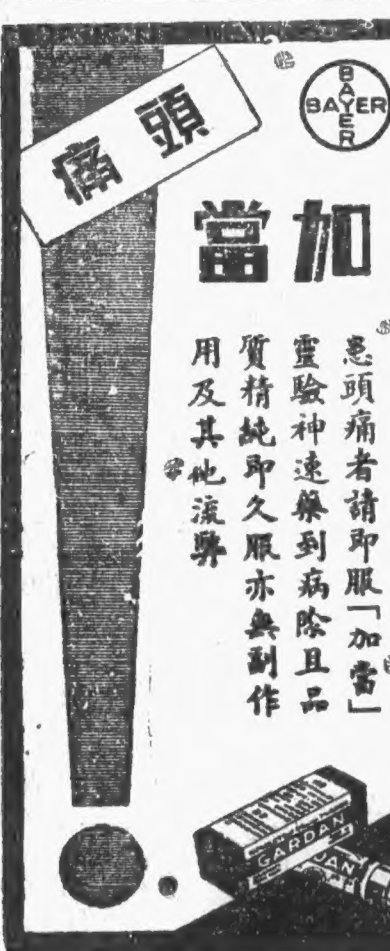 頭痛
BAYER
BAYER
加當
患頭痛者請即服「加當」
靈驗神速藥到病除且品
質精純即久服亦無副作
用及其他流弊
GARDAN
DAN